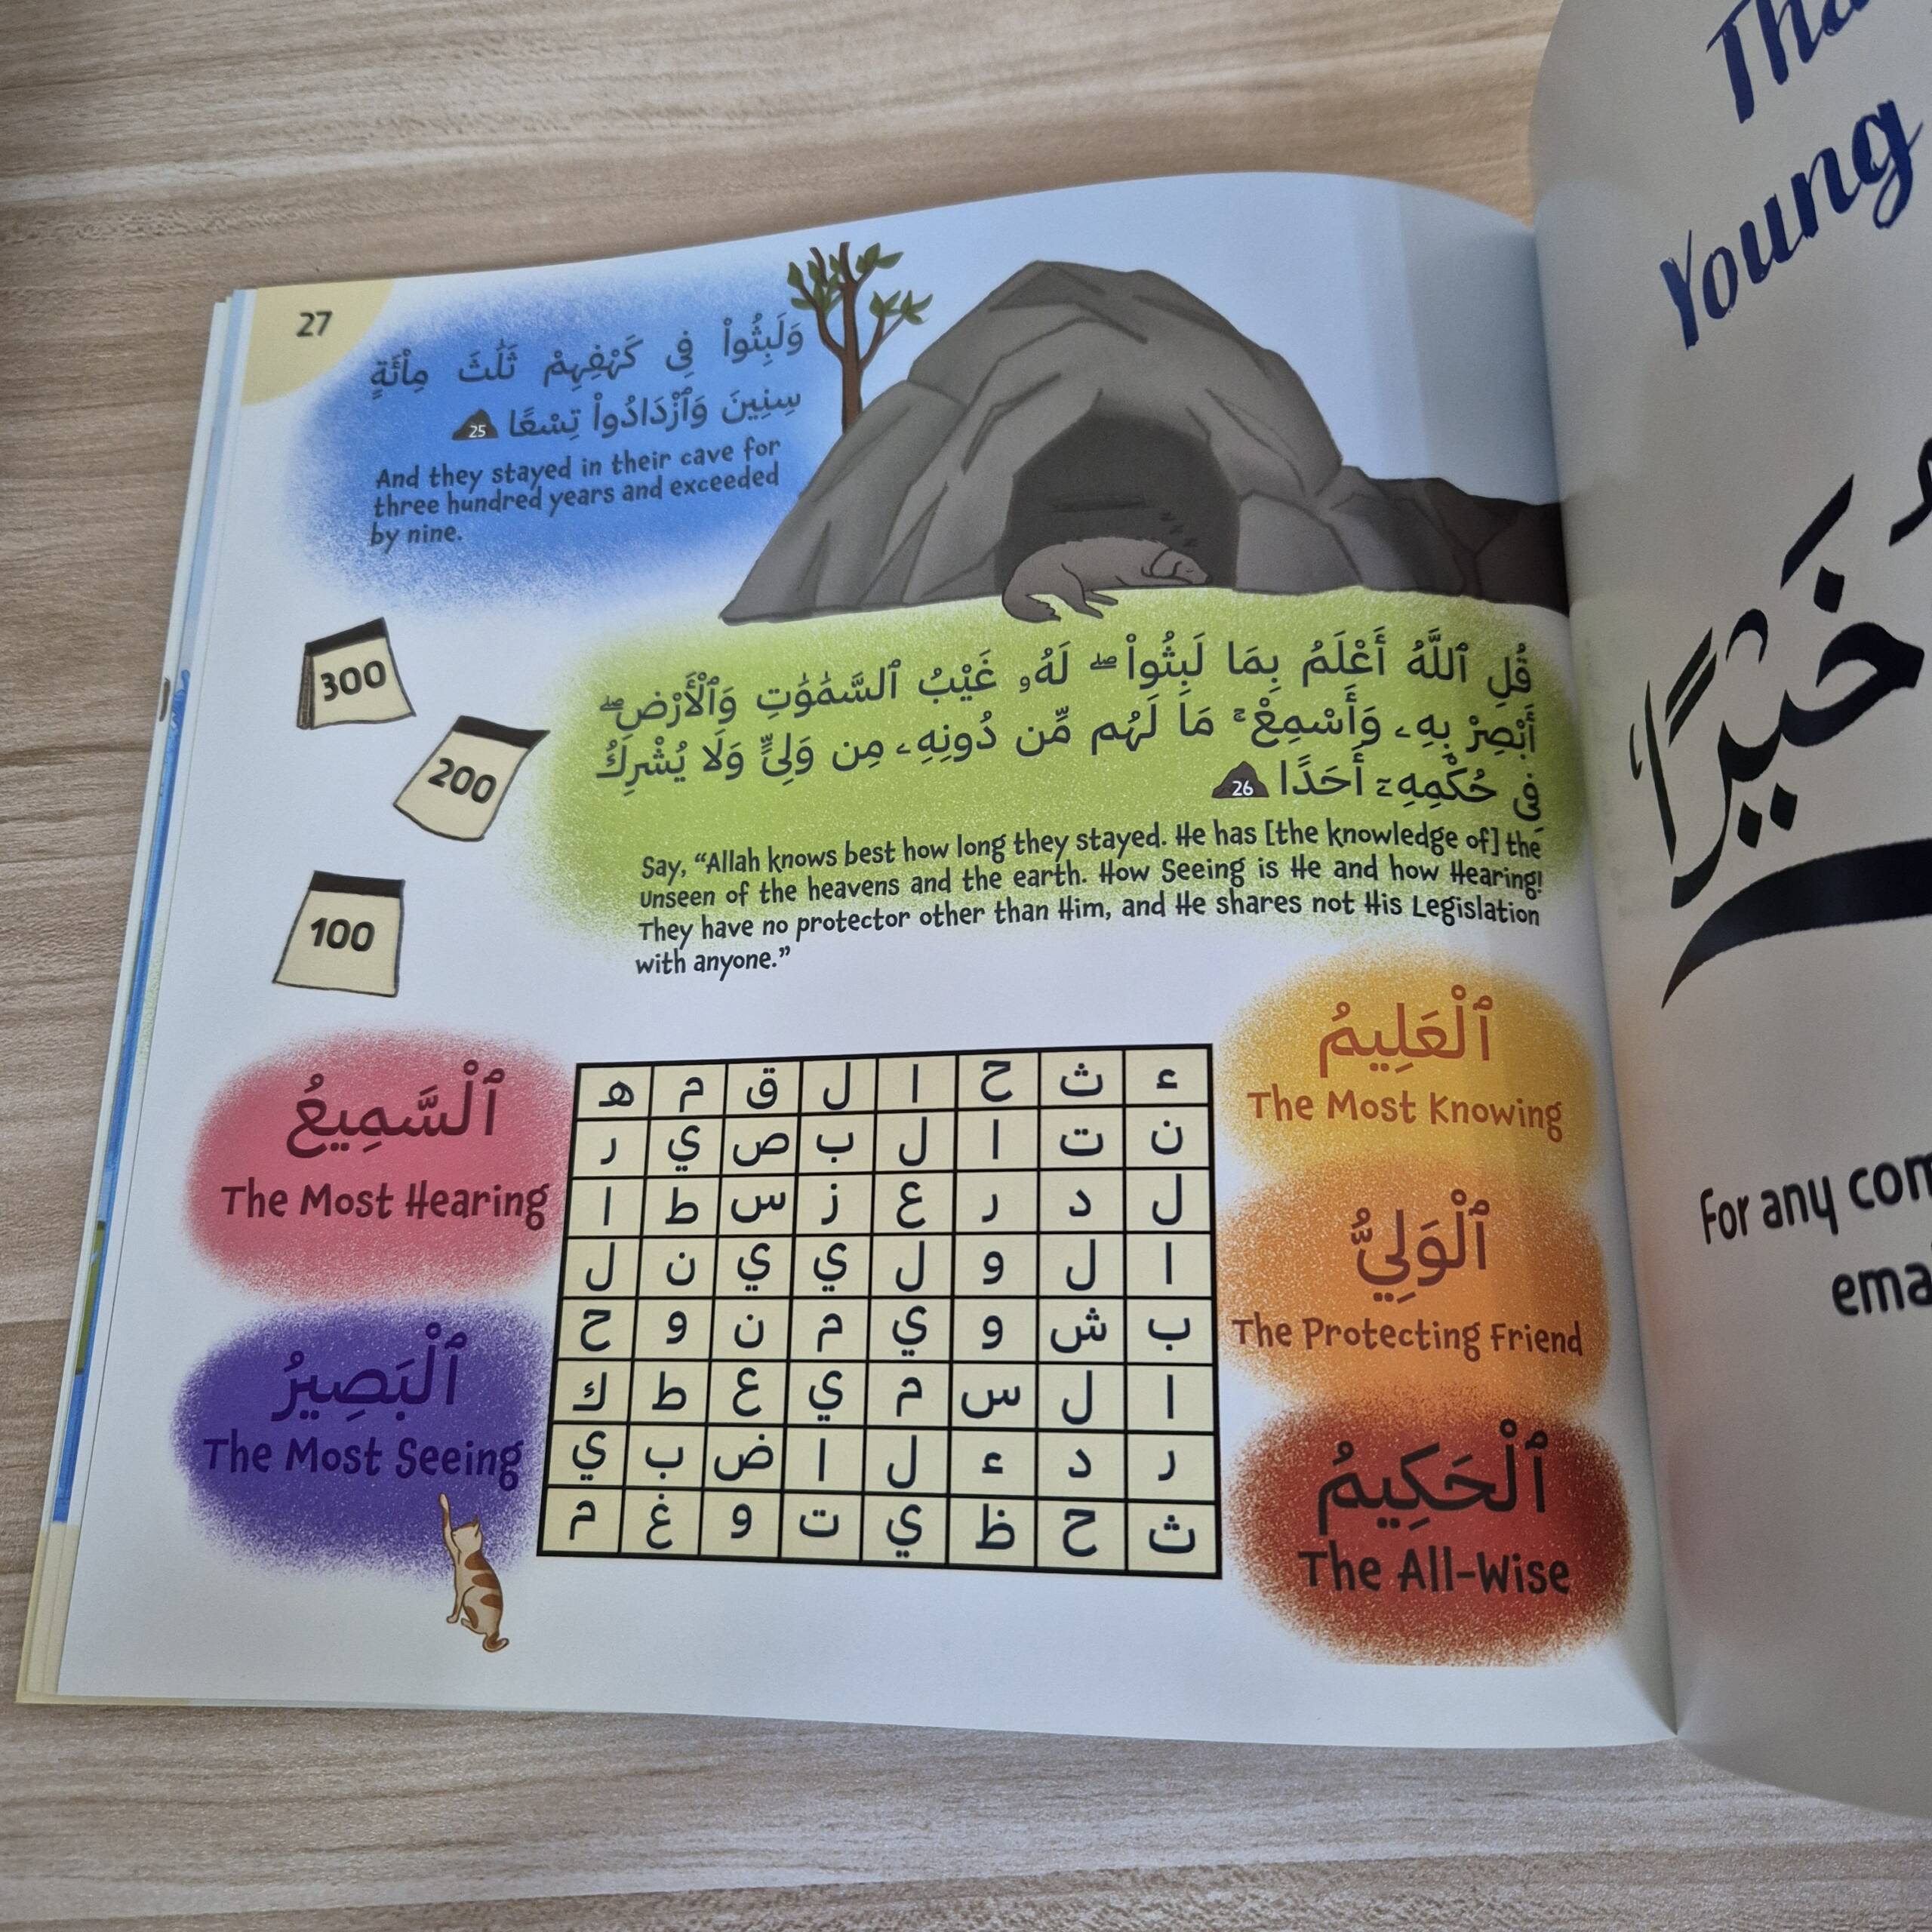 27
وَلَبِثُوا۟ فِى كَهْفِهِمْ ثَلَٰثَ مِا۟ئَةٍ
سِنِينَ وَٱزْدَادُوا۟ تِسْعًا 25
And they stayed in their cave for
three hundred years and exceeded
by nine.
300
200
100
قُلِ ٱللَّهُ أَعْلَمُ بِمَا لَبِثُوا۟ ۖ لَهُۥ غَيْبُ ٱلسَّمَٰوَٰتِ وَٱلْأَرْضِ ۖ
أَبْصِرْ بِهِۦ وَأَسْمِعْ ۚ مَا لَهُم مِّن دُونِهِۦ مِن وَلِىٍّ وَلَا يُشْرِكُ
فِى حُكْمِهِۦٓ أَحَدًا 26
Say, “Allah knows best how long they stayed. He has [the knowledge of] the
unseen of the heavens and the earth. How Seeing is He and how Hearing!
They have no protector other than Him, and He shares not His Legislation
with anyone.”
ٱلْسَّمِيعُ
The Most Hearing
ٱلْبَصِيرُ
The Most Seeing
ء ث ح ا ل ق م ه
ن ت ا ل ب ص ي ر
ل د ر ع ز س ط ا
ا ل و ل ي ي ن ل
ب ش و ي م ن و ح
ا ل س م ي ع ط ك
ر د ء ل ا ض ب ي
ث ح ظ ي ت و غ م
ٱلْعَلِيمُ
The Most Knowing
ٱلْوَلِيُّ
The Protecting Friend
ٱلْحَكِيمُ
The All-Wise
Young
خَيْرًا
For any